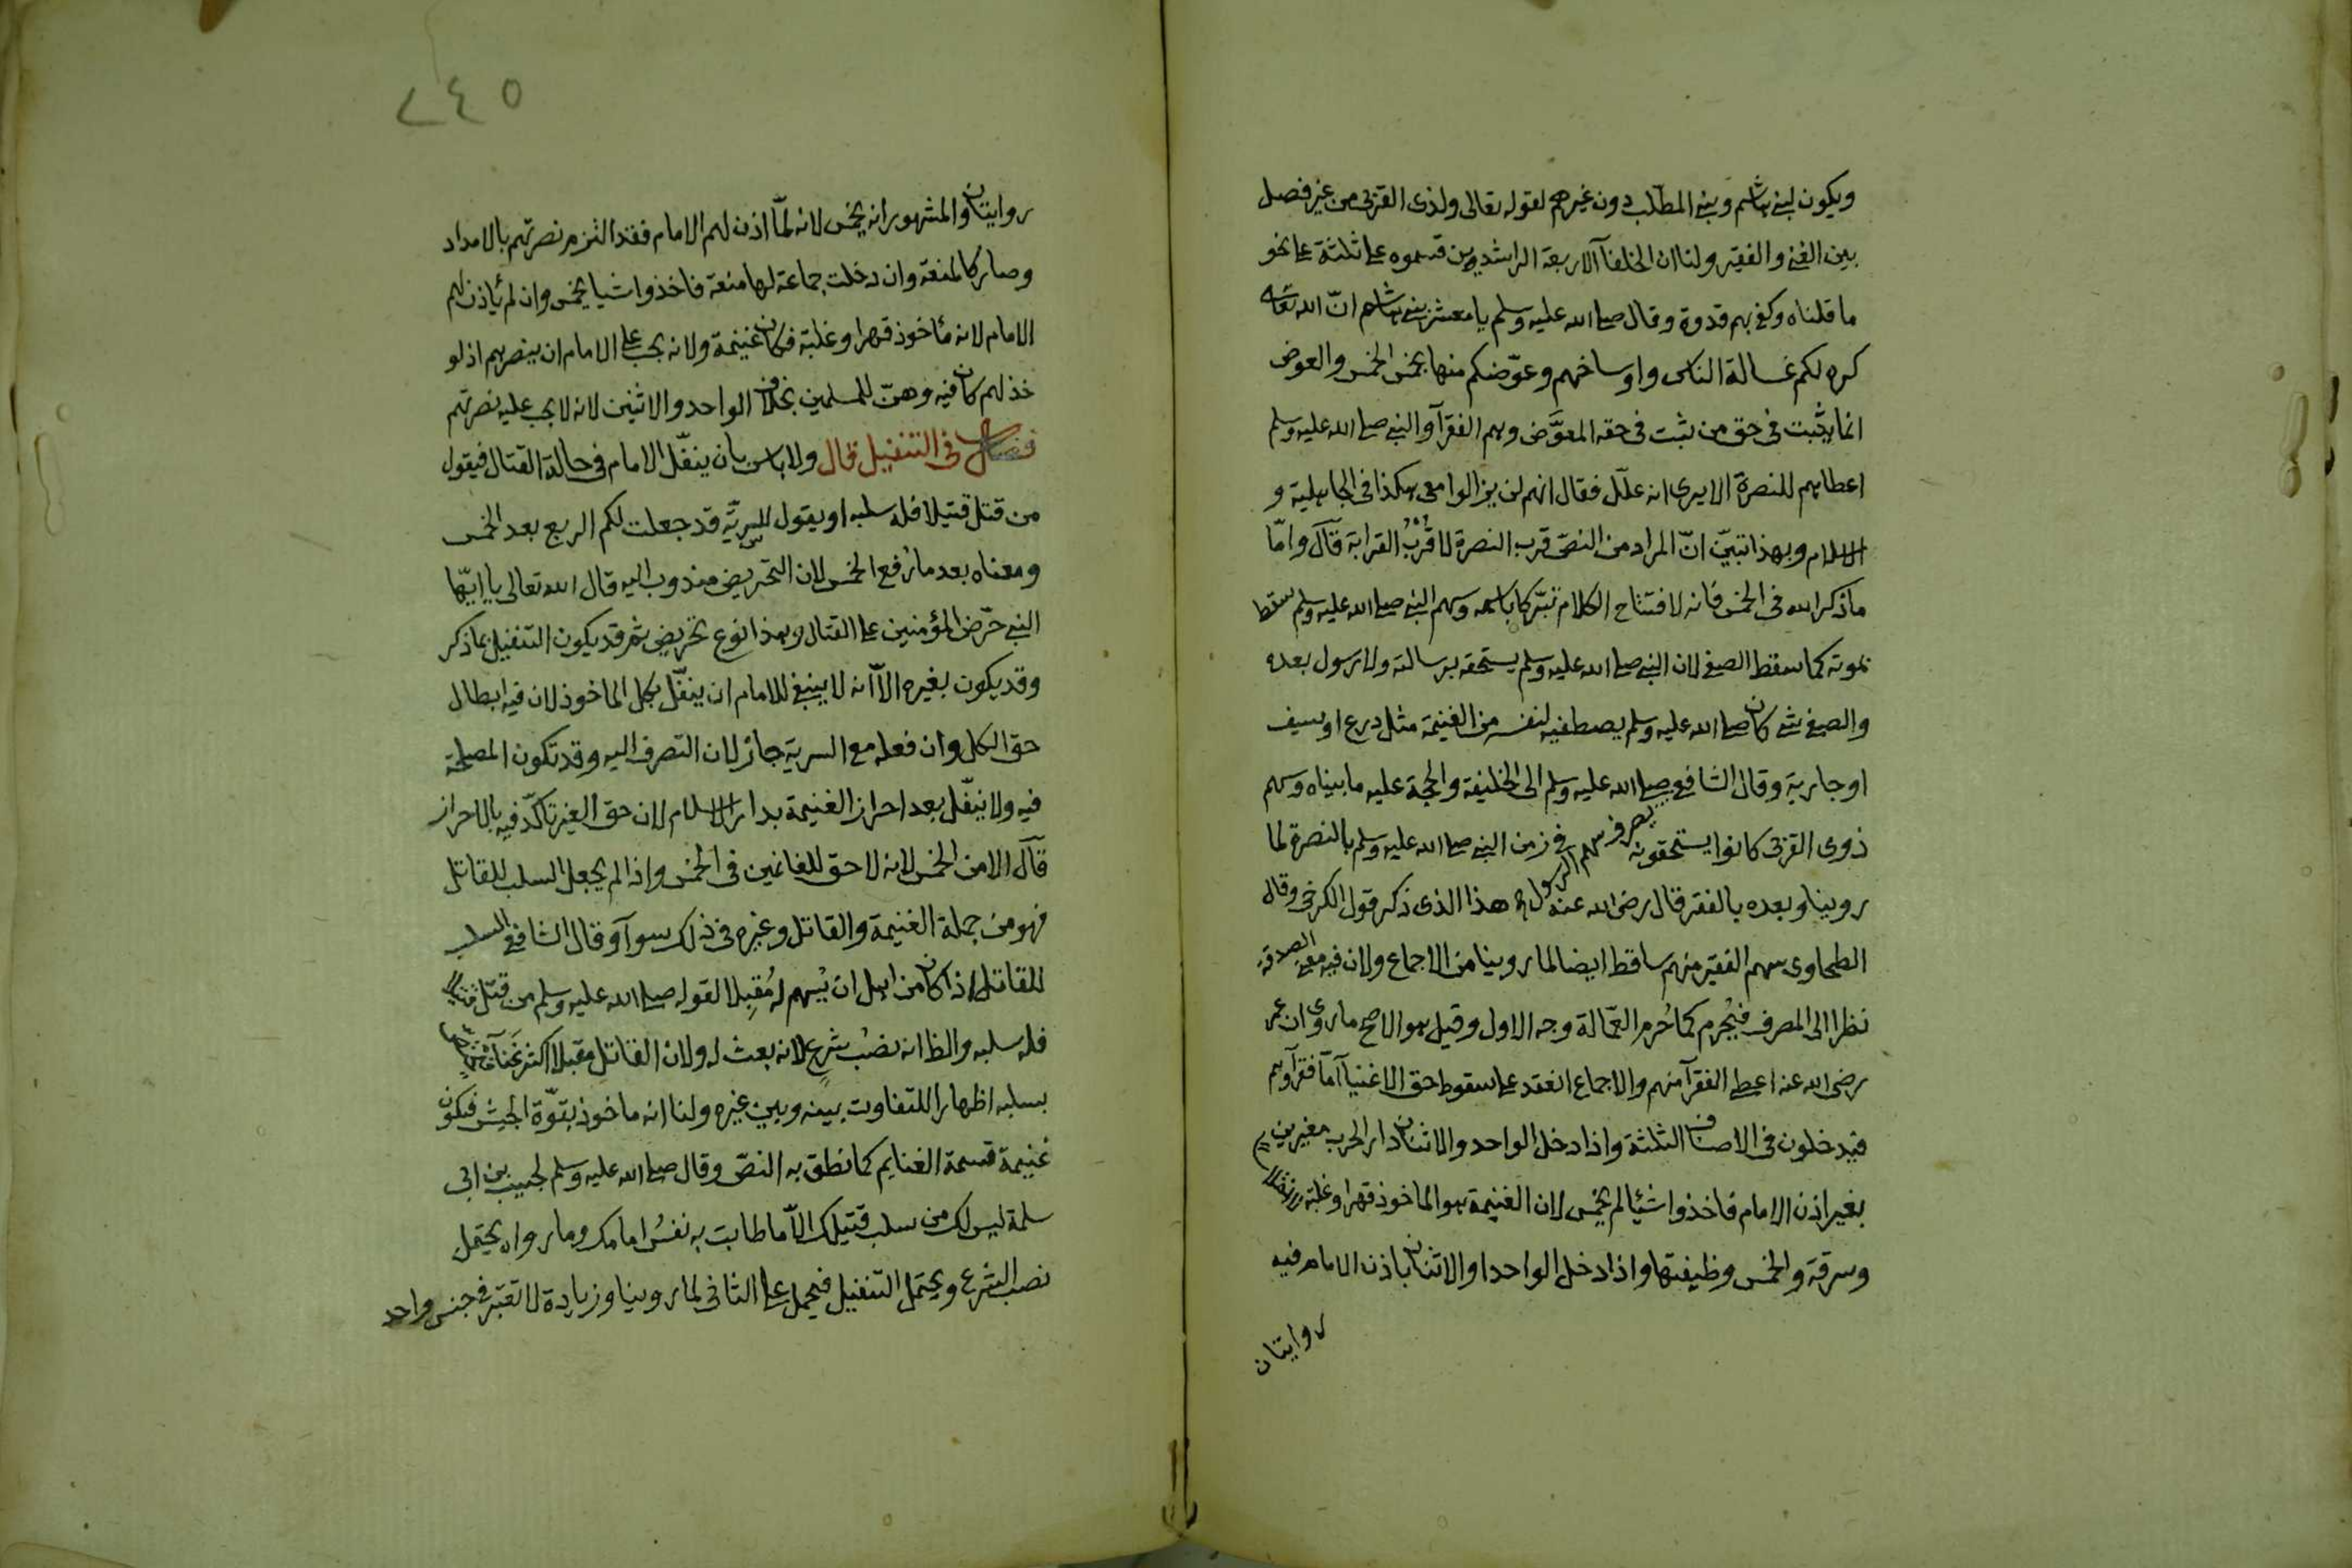 ويكون لبني هاشم وبني المطلب دون غيرهم لقوله تعالى ولذى القربى من غير فصل
بين الغني والفقير ولنا ان الخلفآ الاربعة الراشدين قسموه على ثلثة على نحو
ما قلناه وكفى بهم قدوة وقال صلى الله عليه وسلم يا معشر بني هاشم انّ الله تعالى
كره لكم غسالة الناس واوساخهم وعوّضكم منها بخمس الخمس والعوض
انما يثبت في حق من يثبت في حقه المعوَّض وهم الفقرآ والنبي صلى الله عليه وسلم
اعطاهم للنصرة الا يرى انه علّل فقال انهم لن يزالوا معى هكذا في الجاهلية و
الاسلام وبهذا تبيّن انّ المراد من النصّ قرب النصرة لا قُرْبُ القرابة قآل وامّا
ما ذكر الله في الخمس فانه لافتتاح الكلام تبرّكا باسمه وسهم النبي صلى الله عليه وسلم سقط
بموته كما سقط الصفي لان النبي صلى الله عليه وسلم يستحقه برسالته ولا رسول بعده
والصفي شي كان صلى الله عليه وسلم يصطفيه لنفسه من الغنيمة مثل درع او سيف
او جارية وقال الشافعي يصرف سهم الرسول صلى الله عليه وسلم الى الخليفة والحجة عليه ما بيناه وسهم
ذوى القربى كانوا يستحقونه في زمن النبي صلى الله عليه وسلم بالنصرة لما
روينا وبعده بالفقر قال رضى الله عنه هذا الذى ذكره قول الكرخى وقال
الطحاوى سهم الفقير منهم ساقط ايضا لما روينا من الاجماع ولان فيه معنى الصدقة
نظرا الى المصرف فيُحرم كما حُرم العمالة وجه الاول وقيل هو الاصح ما روى ان عمر
رضى الله عنه اعطى الفقرآ منهم والاجماع انعقد على سقوط حق الاغنيآ اما فقرآوهم
فيدخلون في الاصناف الثلثة واذا دخل الواحد والاثنان دار الحرب مغيرين
بغير اذن الامام فاخذوا شيئا لم يخمس لان الغنيمة هو الماخوذ قهرا وغلبة
وسرقة والخمس وظيفتها واذا دخل الواحد او الاثنان باذن الامام فيه
روايتان
٢٤٥
روايتان والمشهور انه يخمس لانه لمّا اذن لهم الامام فقد التزم نصرتهم بالامداد
وصار كالمنعة وان دخلت جماعة لها منعة فاخذوا شيا يخمس وان لم ياذن لهم
الامام لانه مأخوذ قهرا وغلبة فكان غنيمة ولانه يجب على الامام ان ينصرهم اذ لو
خذلهم كان فيه وهنّ للمسلمين بخلاف الواحد والاثنين لانه لا يجب عليه نصرتهم
فصل في التنفيل قال ولا باس بان ينفّل الامام في حالة القتال فيقول
من قتل قتيلا فله سلبه او يقول للسريّة قد جعلت لكم الربع بعد الخمس
ومعناه بعد ما رُفع الخمس لان التحريض مندوب اليه قال الله تعالى يا ايّها
النبي حرّض المؤمنين على القتال وهذا نوع تحريض ثم قد يكون التنفيل بما ذكر
وقد يكون بغيره الّا انه لا ينبغي للامام ان ينفّل بكل الماخوذ لان فيه ابطال
حق الكل وان فعله مع السرية جاز لان التصرف اليه وقد تكون المصلحة
فيه ولا ينفّل بعد احراز الغنيمة بدار الاسلام لان حق الغير تاكّد فيه بالاحراز
قآل الا من الخمس لانه لا حق للغانمين في الخمس واذا لم يجعل السلب للقاتل
فهو من جملة الغنيمة والقاتل وغيره في ذلك سوآ وقال الشافعي السلب
للقاتل اذا كان من اهل ان يُسهم له مُقبلا لقوله صلى الله عليه وسلم من قتل قتيلا
فله سلبه والظ انه نصْب شرع لانه بعث له ولان القاتل مقبلا اكثر غنآ فيختص
بسلبه اظهارا للتفاوت بينه وبين غيره ولنا انه ماخوذ بقوّة الجيش فيكون
غنيمة قسمة الغنايم كما نطق به النصّ وقال صلى الله عليه وسلم لحبيب بن ابى
سلمة ليس لك من سلب قتيلك الّا ما طابت به نفسُ امامك وما رواه يحتمل
نصب الشرع ويحتمل التنفيل فيحمل على الثاني لما روينا وزيادة لا تعتبر في جنس واحد